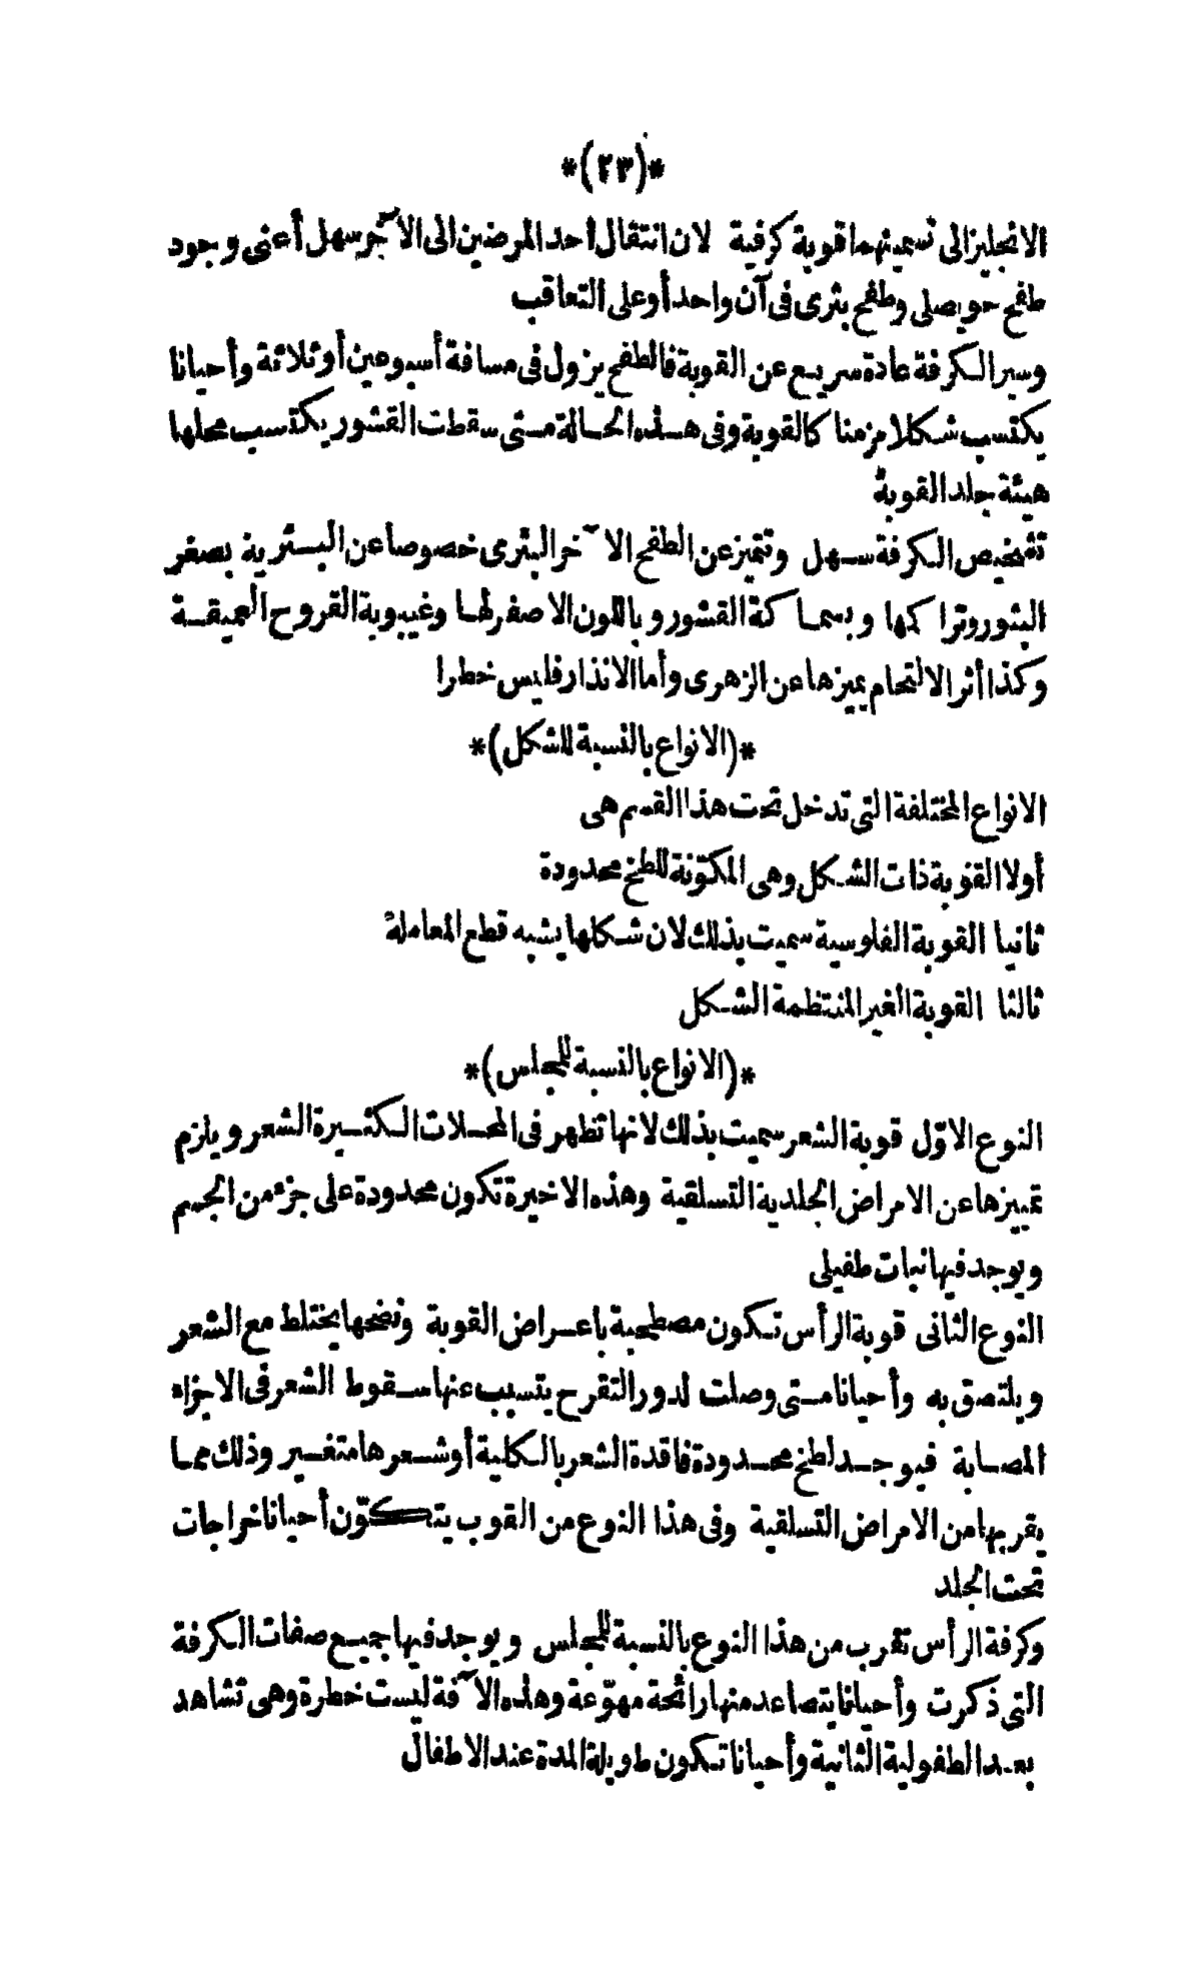 *(٢٣)*
الانجليز الى تسميتهما قوبة كرفية لان انتقال احد المرضين الى الآخر سهل أعنى وجود
طفح حويصلى وطفح بثرى فى آن واحد أو على التعاقب
وسير الكرفة عادة سريع عن القوبة فالطفح يزول فى مسافة أسبوعين أو ثلاثة وأحيانا
يكتسب شكلا مزمنا كالقوبة وفى هذه الحالة متى سقطت القشور يكتسب محلها
هيئة جلد القوبة
تشخيص الكرفة سهل وتتميز عن الطفح الآخر البثرى خصوصا عن البثرية بصغر
البثور وتراكمها وبسماكة القشور وباللون الاصفر لها وغيبوبة القروح العميقة
وكذا أثر الالتحام يميزها عن الزهرى وأما الانذار فليس خطرا
*(الانواع بالنسبة للشكل)*
الانواع المختلفة التى تدخل تحت هذا القسم هى
أولا القوبة ذات الشكل وهى المكوّنة للطخ محدودة
ثانيا القوبة الفلوسية سميت بذلك لان شكلها يشبه قطع المعاملة
ثالثا القوبة الغير المنتظمة الشكل
*(الانواع بالنسبة للمجلس)*
النوع الاوّل قوبة الشعر سميت بذلك لانها تظهر فى المحلات الكثيرة الشعر ويلزم
تمييزها عن الامراض الجلدية التسلقية وهذه الاخيرة تكون محدودة على جزء من الجسم
ويوجد فيها نبات طفيلى
النوع الثانى قوبة الرأس تكون مصطحبة باعراض القوبة ونضحها يختلط مع الشعر
ويلتصق به وأحيانا متى وصلت لدور التقرح يتسبب عنها سقوط الشعر فى الاجزاء
المصابة فيوجد لطخ محدودة فاقدة الشعر بالكلية أو شعرها متغير وذلك مما
يقربها من الامراض التسلقية وفى هذا النوع من القوب يتكوّن أحيانا خراجات
تحت الجلد
وكرفة الرأس تقرب من هذا النوع بالنسبة للمجلس ويوجد فيها جميع صفات الكرفة
التى ذكرت وأحيانا يتصاعد منها رائحة مهوّعة وهذه الآفة ليست خطرة وهى تشاهد
بعد الطفولية الثانية وأحيانا تكون طويلة المدة عند الاطفال